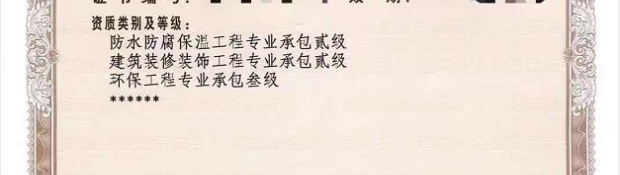 证书编号：
资质类别及等级：
防水防腐保温工程专业承包贰级
建筑装修装饰工程专业承包贰级
环保工程专业承包叁级
******